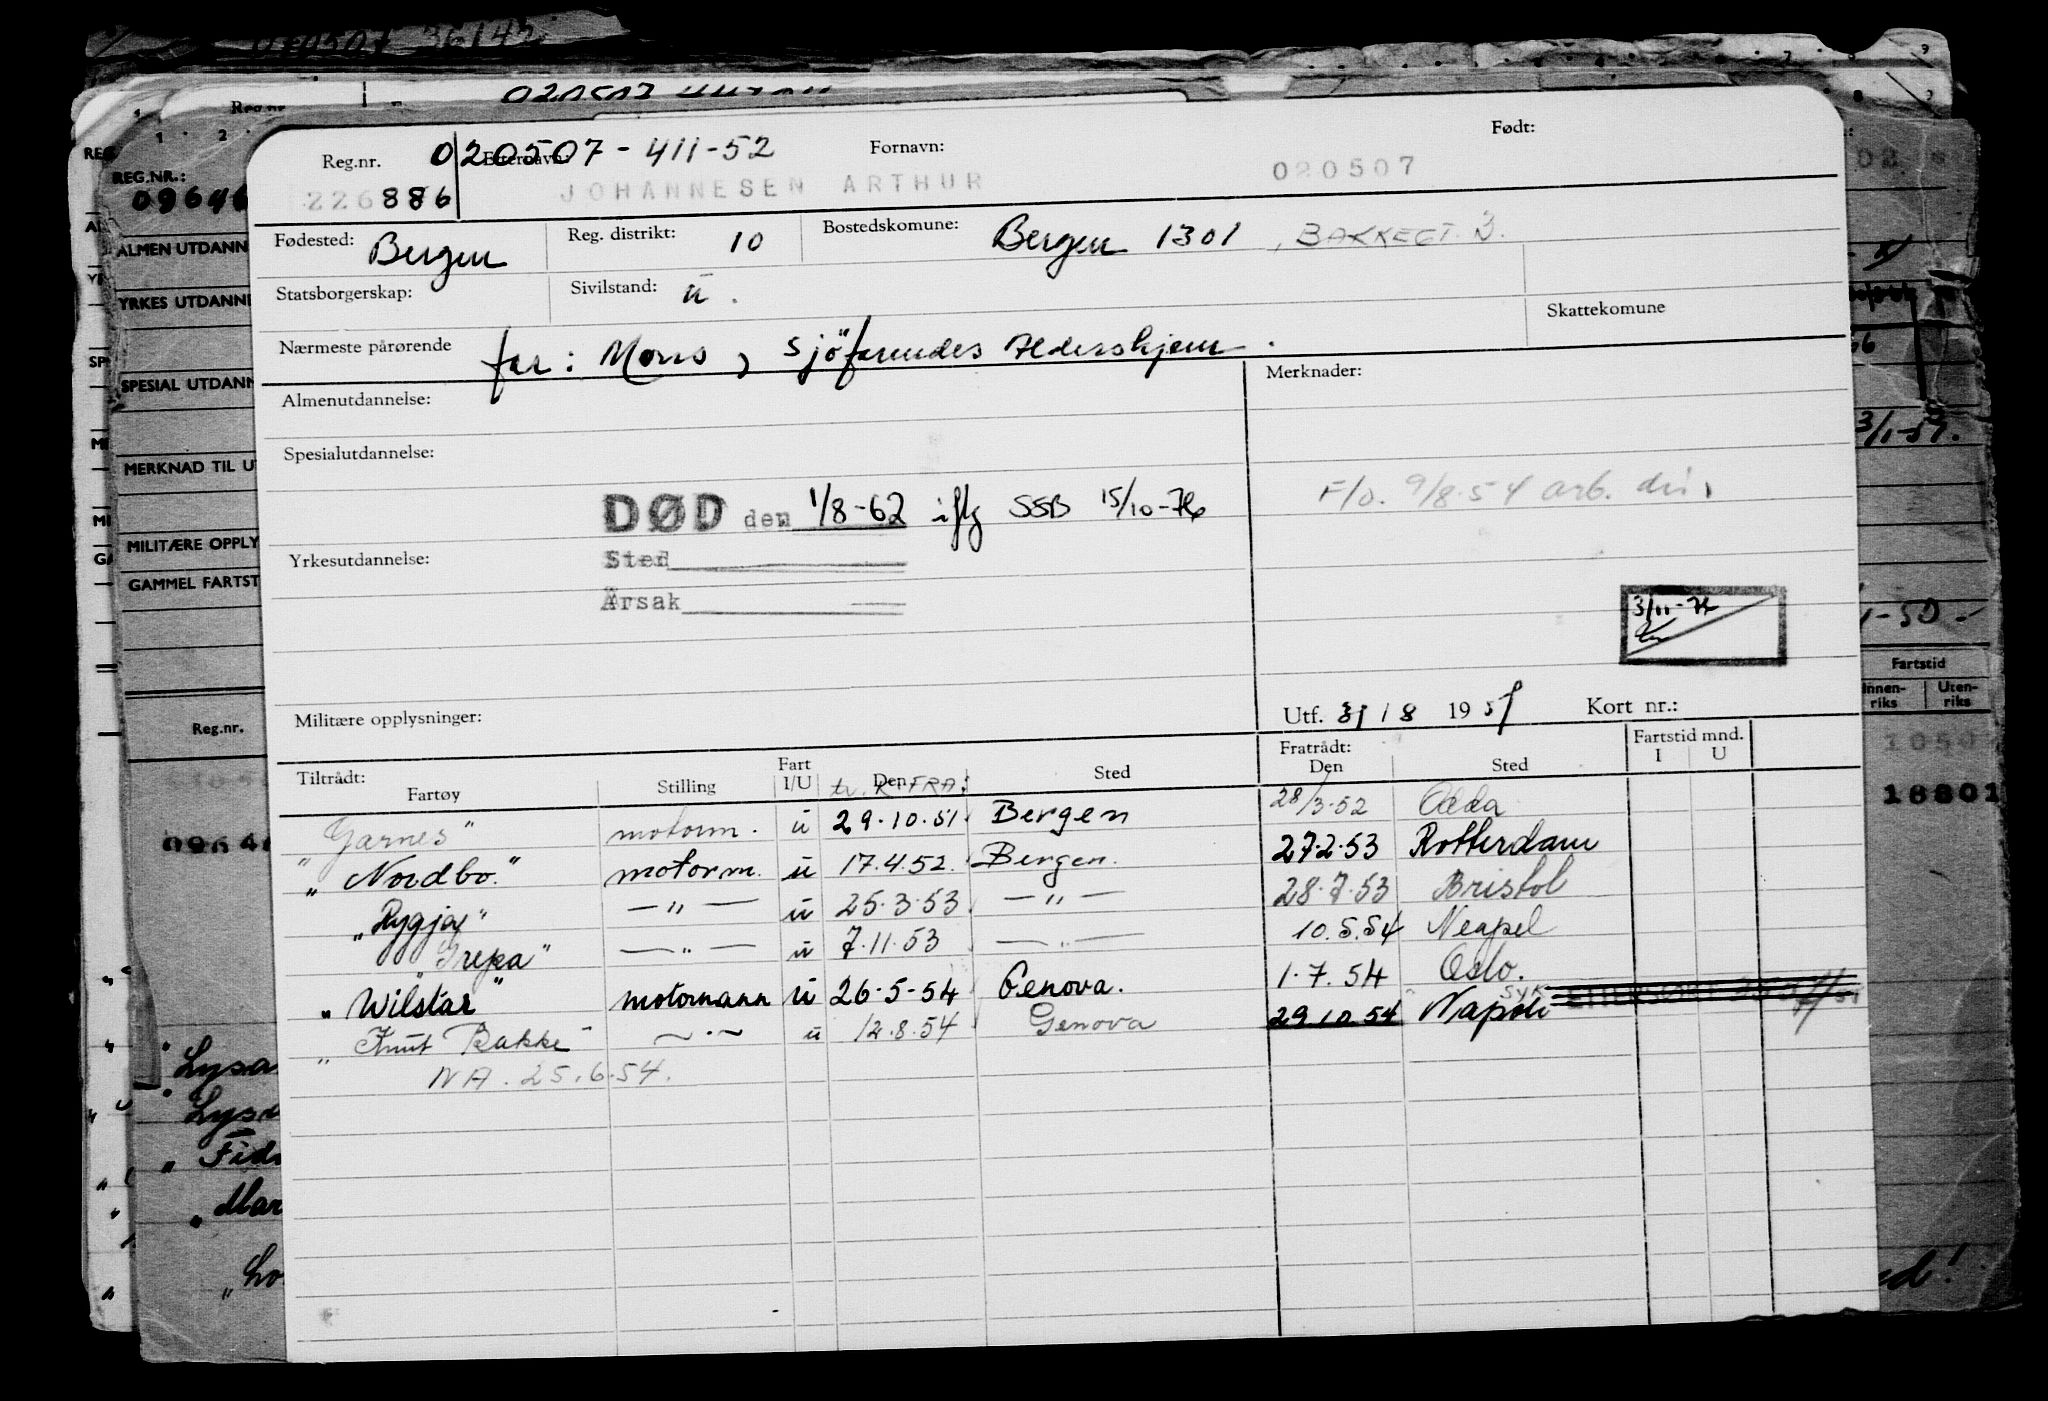 Reg.nr. 020507-411-52 Etternavn: Fornavn: Født:
226886 JOHANNESEN ARTHUR 020507
Fødested: Bergen Reg. distrikt: 10 Bostedskomune: Bergen 1301, BAKKEGT. 3.
Statsborgerskap: Sivilstand: u. Skattekomune
Nærmeste pårørende far: Mons, Sjöfarendes Aldershjem.
Almenutdannelse: Merknader:
Spesialutdannelse:
F/O. 9/8-54 arb. dir.
DØD den 1/8-62 iflg SSB 15/10-76
Yrkesutdannelse: Sted
Årsak
3/11-76
Militære opplysninger: Utf. 31/8 1951 Kort nr.:
Tiltrådt: Fart Fratrådt: Fartstid mnd.
Fartøy Stilling I/U Den Sted Den Sted I U
"Garnes" motorm. u 29.10.51 Bergen 28/3.52 Odda
"Nordbo." motorm. u 17.4.52. Bergen. 27.2.53 Rotterdam
"Rygja" —"— u 25.3.53 —"— 28.7.53 Bristol
"Grepa" —"— u 7.11.53 —"— 10.5.54 Neapel
"Wilstar" motormann u 26-5-54 Genova. 1.7.54 Oslo.
"Knut Bakke" —"— u 12.8.54 Genova 29.10.54 Napoli SYK
NA. 25.6.54.
REG.NR.:
ALMEN UTDANN
YRKES UTDANNE
SPESIAL UTDANN
MERKNAD TIL U
MILITÆRE OPPLY
GAMMEL FARTST
Reg.nr.
Fartstid
Innen-riks Uten-riks
18801